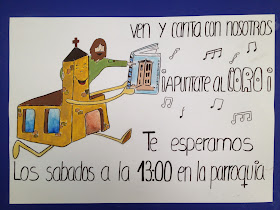 VEN Y CANTA CON NOSOTROS
¡APUNTATE AL CORO!
Te esperamos
Los sabados a la 13:00 en la parroquia